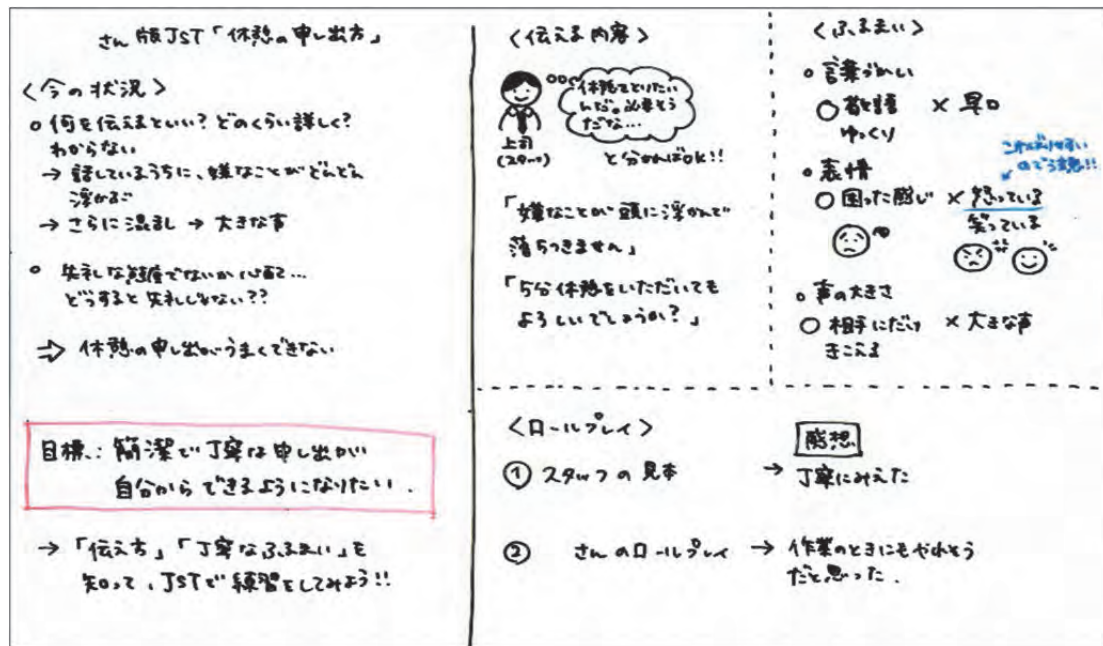 さん版JST「休憩の申し出方」
<今の状況>
何を伝えるといい?どのくらい詳しく?
わからない
→ 話しているうちに、嫌なことがどんどん
浮かぶ
→ さらに混乱 → 大きな声
失礼な態度でないか心配…
どうすると失礼じゃない??
⇨ 休憩の申し出がうまくできない
目標:簡潔で丁寧な申し出が
自分からできるようになりたい.
→「伝え方」「丁寧なふるまい」を
知って、JSTで練習をしてみよう!!
<伝える内容>
休憩をとりたい
んだ。必要そう
だな…
上司
(スタッフ)
と分かればOK!!
「嫌なことが頭に浮かんで
落ちつきません」
「5分休憩をいただいても
よろしいでしょうか?」
<ふるまい>
言葉づかい
○ 敬語 × 早口
ゆっくり
これになりやすい
ので注意!!
表情
○ 困った感じ × 怒っている
笑っている
声の大きさ
○ 相手にだけ × 大きな声
きこえる
<ロールプレイ>
感想
① スタッフの見本 → 丁寧にみえた
② さんのロールプレイ → 作業のときにもやれそう
だと思った.